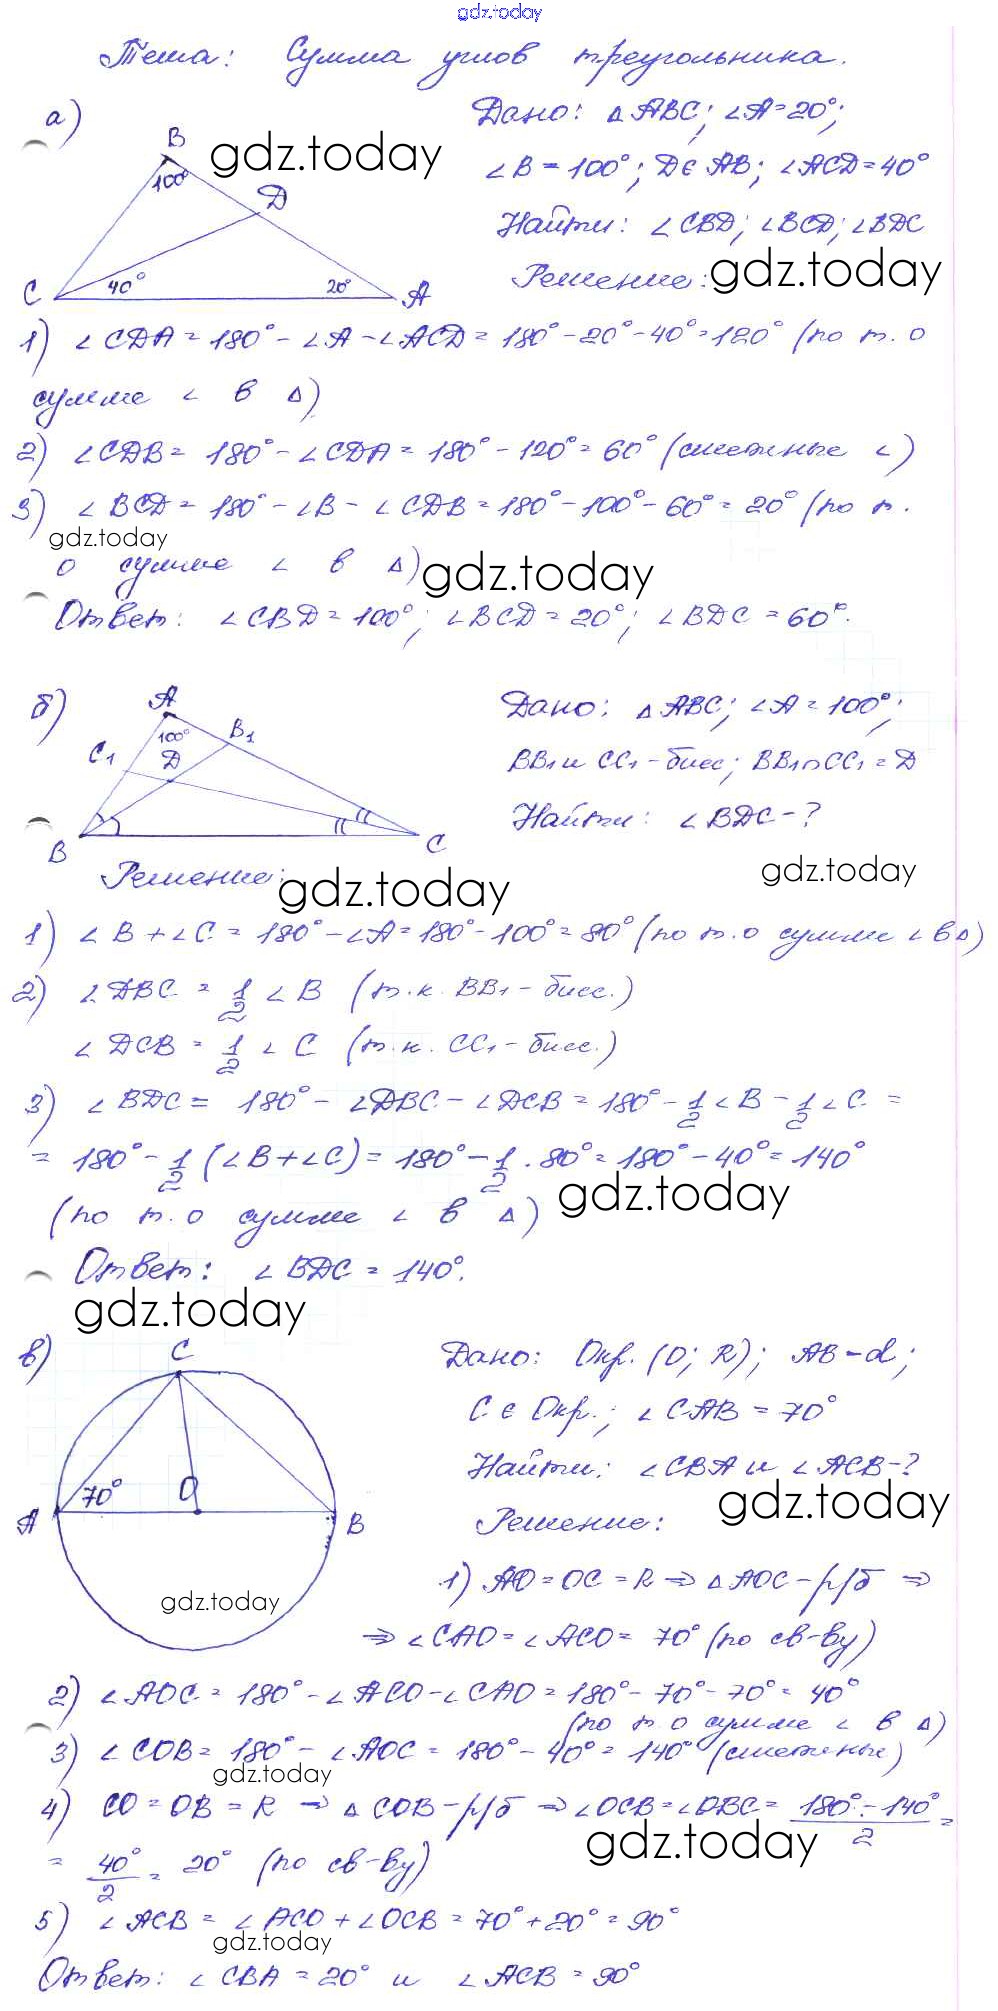 gdz.today
Тема: Сумма углов треугольника.
а)
B
100°
D
C
40°
20°
A
gdz.today
Дано: △ABC; ∠A=20°;
∠B=100°; D∈AB; ∠ACD=40°
Найти: ∠CBD; ∠BCD; ∠BDC
Решение:
gdz.today
1) ∠CDA = 180° - ∠A - ∠ACD = 180° - 20° - 40° = 120° (по т. о
сумме ∠ в △)
2) ∠CDB = 180° - ∠CDA = 180° - 120° = 60° (смежные ∠)
3) ∠BCD = 180° - ∠B - ∠CDB = 180° - 100° - 60° = 20° (по т.
gdz.today
о сумме ∠ в △)
gdz.today
Ответ: ∠CBD = 100°; ∠BCD = 20°; ∠BDC = 60°.
б)
A
100°
B1
C1
D
B
C
Дано: △ABC; ∠A = 100°;
BB1 и CC1 - бисс; BB1∩CC1 = D
Найти: ∠BDC - ?
gdz.today
Решение:
gdz.today
1) ∠B + ∠C = 180° - ∠A = 180° - 100° = 80° (по т. о сумме ∠ в △)
2) ∠DBC = 1/2 ∠B (т.к. BB1 - бисс.)
∠DCB = 1/2 ∠C (т.к. CC1 - бисс.)
3) ∠BDC = 180° - ∠DBC - ∠DCB = 180° - 1/2 ∠B - 1/2 ∠C =
= 180° - 1/2 (∠B + ∠C) = 180° - 1/2 · 80° = 180° - 40° = 140°
gdz.today
(по т. о сумме ∠ в △)
Ответ: ∠BDC = 140°.
gdz.today
в)
C
70°
O
A
B
gdz.today
Дано: Окр. (O; R); AB - d;
C ∈ Окр.; ∠CAB = 70°
Найти: ∠CBA и ∠ACB - ?
gdz.today
Решение:
1) AO = OC = R ⇒ △AOC - р/б ⇒
⇒ ∠CAO = ∠ACO = 70° (по св-ву)
2) ∠AOC = 180° - ∠ACO - ∠CAO = 180° - 70° - 70° = 40°
(по т. о сумме ∠ в △)
3) ∠COB = 180° - ∠AOC = 180° - 40° = 140° (смежные)
gdz.today
4) CO = OB = R ⇒ △COB - р/б ⇒ ∠OCB = ∠OBC = (180° - 140°)/2 =
gdz.today
= 40°/2 = 20° (по св-ву)
5) ∠ACB = ∠ACO + ∠OCB = 70° + 20° = 90°
gdz.today
Ответ: ∠CBA = 20° и ∠ACB = 90°